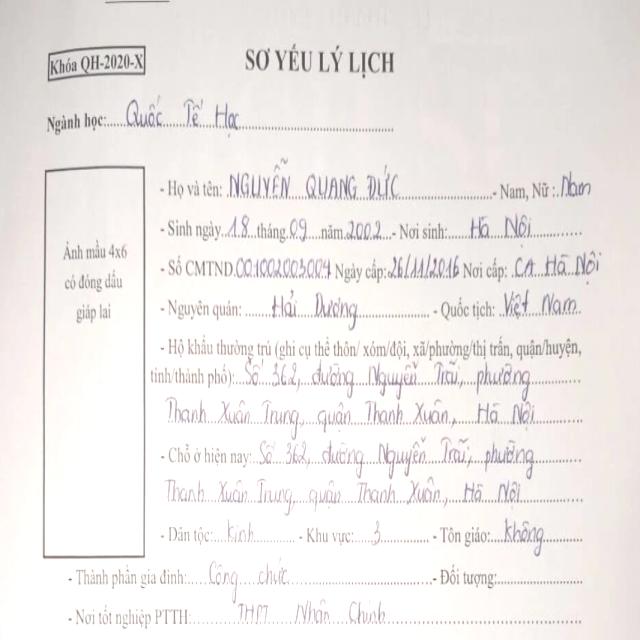 Khóa QH-2020-X
SƠ YẾU LÝ LỊCH
Ngành học: Quốc Tế Học
Ảnh mầu 4x6
có đóng dấu
giáp lai
- Họ và tên: NGUYỄN QUANG ĐỨC - Nam, Nữ: Nam
- Sinh ngày 18 tháng 09 năm 2002 - Nơi sinh: Hà Nội
- Số CMTND 001002003004 Ngày cấp: 26/11/2016 Nơi cấp: CA Hà Nội
- Nguyên quán: Hải Dương - Quốc tịch: Việt Nam
- Hộ khẩu thường trú (ghi cụ thể thôn/ xóm/đội, xã/phường/thị trấn, quận/huyện,
tỉnh/thành phố): Số 362, đường Nguyễn Trãi, phường
Thanh Xuân Trung, quận Thanh Xuân, Hà Nội
- Chỗ ở hiện nay: Số 362, đường Nguyễn Trãi, phường
Thanh Xuân Trung, quận Thanh Xuân, Hà Nội
- Dân tộc: Kinh - Khu vực: 3 - Tôn giáo: Không
- Thành phần gia đình: Công chức - Đối tượng:
- Nơi tốt nghiệp PTTH: THPT Nhân Chính